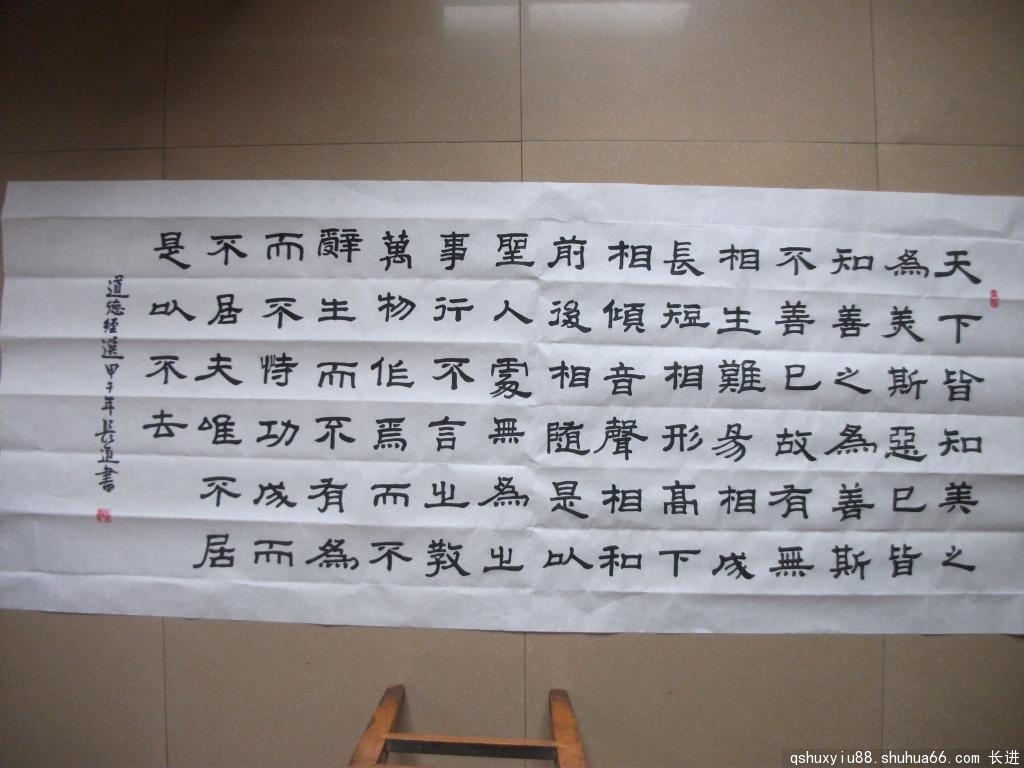 天下皆知美之
為美斯惡已皆
知善之為善斯
不善已故有無
相生難易相成
長短相形高下
相傾音聲相和
前後相隨是以
聖人處無為之
事行不言之教
萬物作焉而不
辭生而不有為
而不恃功成而
不居夫唯不居
是以不去
道德經選甲午年長進書
qshuxyiu88.shuhua66.com 长进